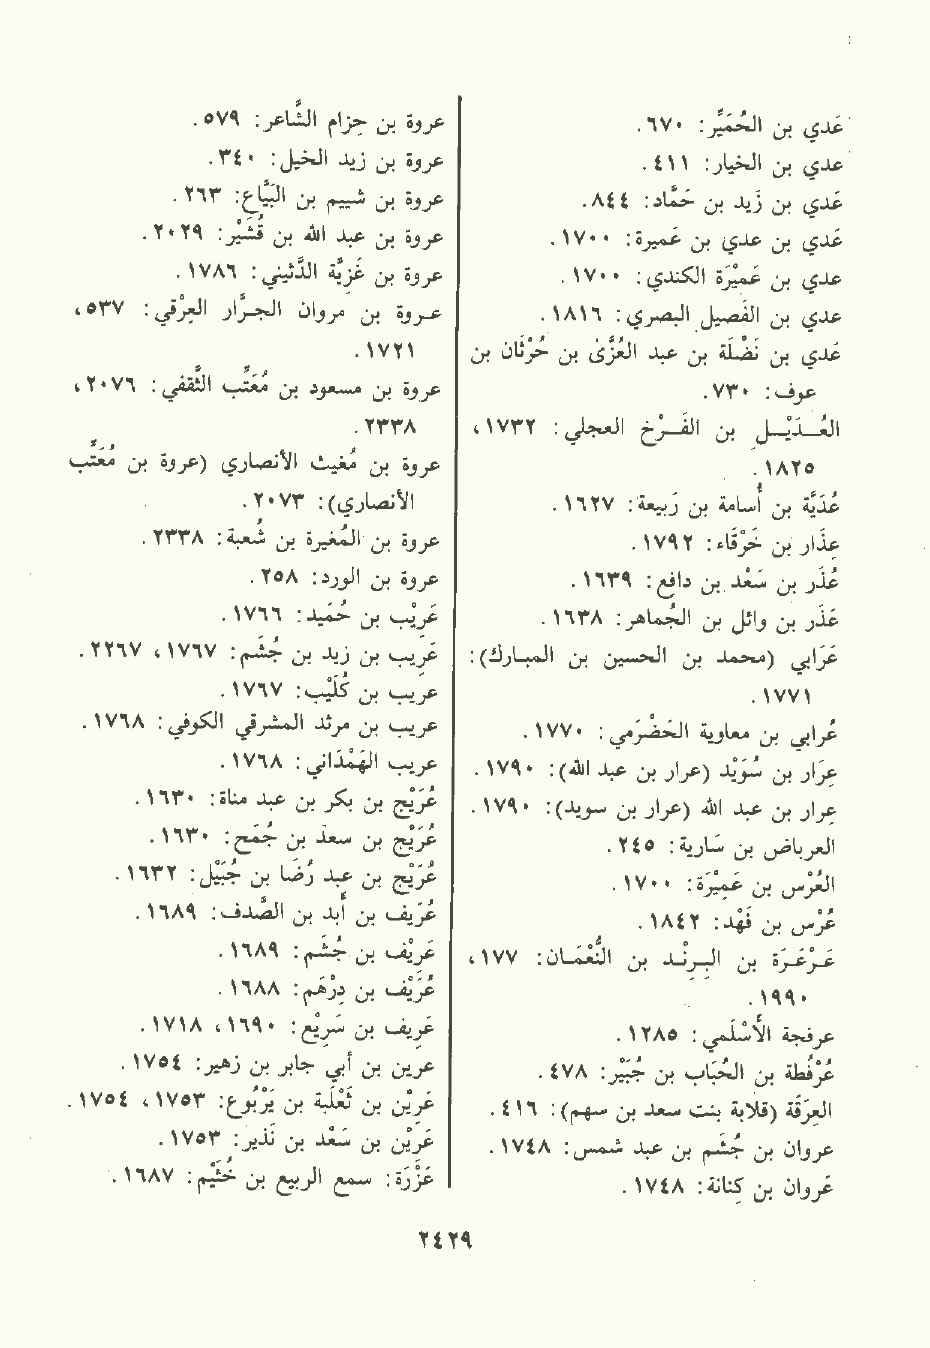 عَدي بن الحُمَيِّر: ٦٧٠.
عدي بن الخيار: ٤١١.
عَدي بن زَيد بن حَمَّاد: ٨٤٤.
عَدي بن عدي بن عَميرة: ١٧٠٠.
عدي بن عَمِيْرَة الكندي: ١٧٠٠.
عدي بن الفَصيل البصري: ١٨١٦.
عَدي بن نَضْلَة بن عبد العُزَّى بن حُرْثَان بن
عوف: ٧٣٠.
العُـدَيْـــل بن الفَـــرْخ العجلي: ١٧٣٢،
١٨٢٥.
عُدَيَّة بن أُسامة بن رَبيعة: ١٦٢٧.
عِذَار بن خَرْقَاء: ١٧٩٢.
عُذَر بن سَعْد بن دافع: ١٦٣٩.
عَذَر بن وائل بن الجُماهر: ١٦٣٨.
عَرَابي (محمد بن الحسين بن المبارك):
١٧٧١.
عُرابي بن معاوية الحَضْرَمي: ١٧٧٠.
عِرَار بن سُوَيْد (عرار بن عبد الله): ١٧٩٠.
عِرار بن عبد الله (عرار بن سويد): ١٧٩٠.
العرباض بن سَارية: ٢٤٥.
العُرْس بن عَمِيْرَة: ١٧٠٠.
عُرْس بن فَهْد: ١٨٤٢.
عَـرْعَـرَة بن البِـرِنْـد بن النُّعْمَـان: ١٧٧،
١٩٩٠.
عرفجة الأَسْلَمي: ١٢٨٥.
عُرْفُطة بن الحُبَاب بن جُبَيْر: ٤٧٨.
العَرِقَة (قلابة بنت سعد بن سهم): ٤١٦.
عروان بن جُشَم بن عبد شمس: ١٧٤٨.
عَروان بن كِنانة: ١٧٤٨.
عروة بن حِزام الشَّاعر: ٥٧٩.
عروة بن زيد الخيل: ٣٤٠.
عروة بن شييم بن البَيَّاع: ٢٦٣.
عروة بن عبد الله بن قُشَيْر: ٢٠٢٩.
عروة بن غَزِيَّة الدَّثيني: ١٧٨٦.
عـروة بن مروان الجـرَّار العِرْقي: ٥٣٧،
١٧٢١.
عروة بن مسعود بن مُعَتِّب الثَّقفي: ٢٠٧٦،
٢٣٣٨.
عروة بن مُغيث الأنصاري (عروة بن مُعَتِّب
الأنصاري): ٢٠٧٣.
عروة بن المُغيرة بن شُعبة: ٢٣٣٨.
عروة بن الورد: ٢٥٨.
عَرِيْب بن حُمَيد: ١٧٦٦.
عَريب بن زيد بن جُشَم: ١٧٦٧، ٢٢٦٧.
عريب بن كُلَيْب: ١٧٦٧.
عريب بن مرثد المشرقي الكوفي: ١٧٦٨.
عريب الهَمْدَاني: ١٧٦٨.
عُرَيْج بن بكر بن عبد مناة: ١٦٣٠.
عُرَيْج بن سعد بن جُمَح: ١٦٣٠.
عُرَيْج بن عبد رُضَا بن جُبَيْل: ١٦٣٢.
عُرَيف بن أُبد بن الصَّدف: ١٦٨٩.
عَرِيْف بن جُشَم: ١٦٨٩.
عُرَيْف بن دِرْهَم: ١٦٨٨.
عَرِيف بن سَرِيْع: ١٦٩٠، ١٧١٨.
عرين بن أبي جابر بن زهير: ١٧٥٤.
عَرِيْن بن ثَعْلَبة بن يَرْبُوع: ١٧٥٣، ١٧٥٤.
عَرِيْن بن سَعْد بن نَذير: ١٧٥٣.
عَزْرَة: سمع الربيع بن خُثَيْم: ١٦٨٧.
٢٤٢٩